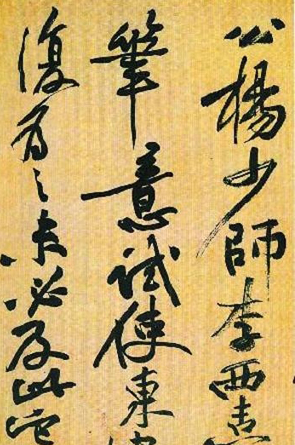 公楊少師李西臺
筆意試使東
復為之未必及此它